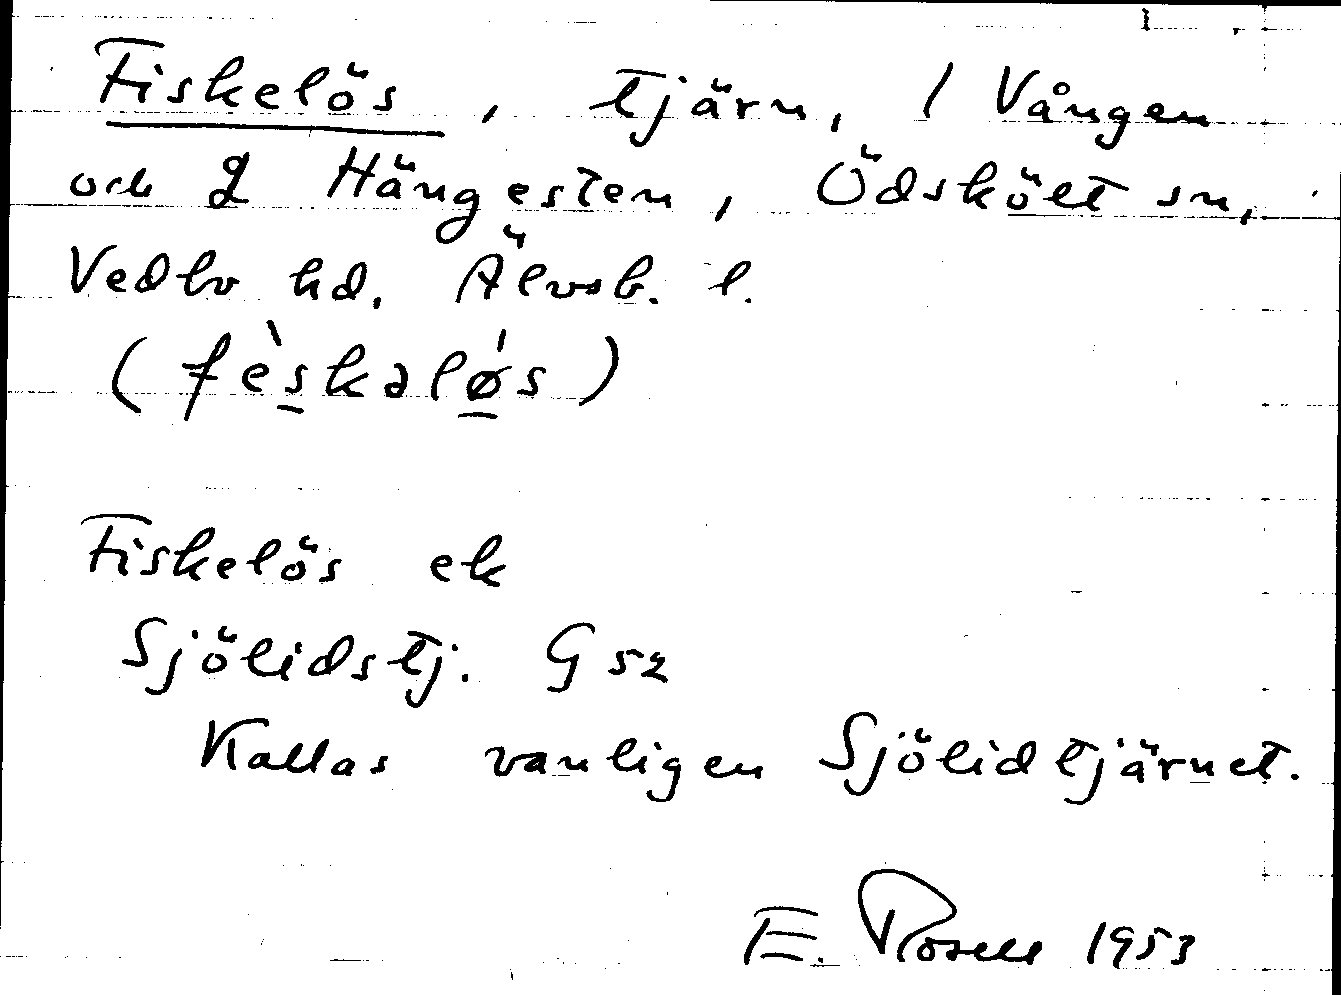 Fiskelös, tjärn, 1 Vången
och 2 Hängesten, Ödskölt sn,
Vedbo hd. Älvsb. l.
(fèskaløs)
Fiskelös ek
Sjölidstj. G 52
Kallas vanligen Sjölidtjärnet.
E. Rosell 1953